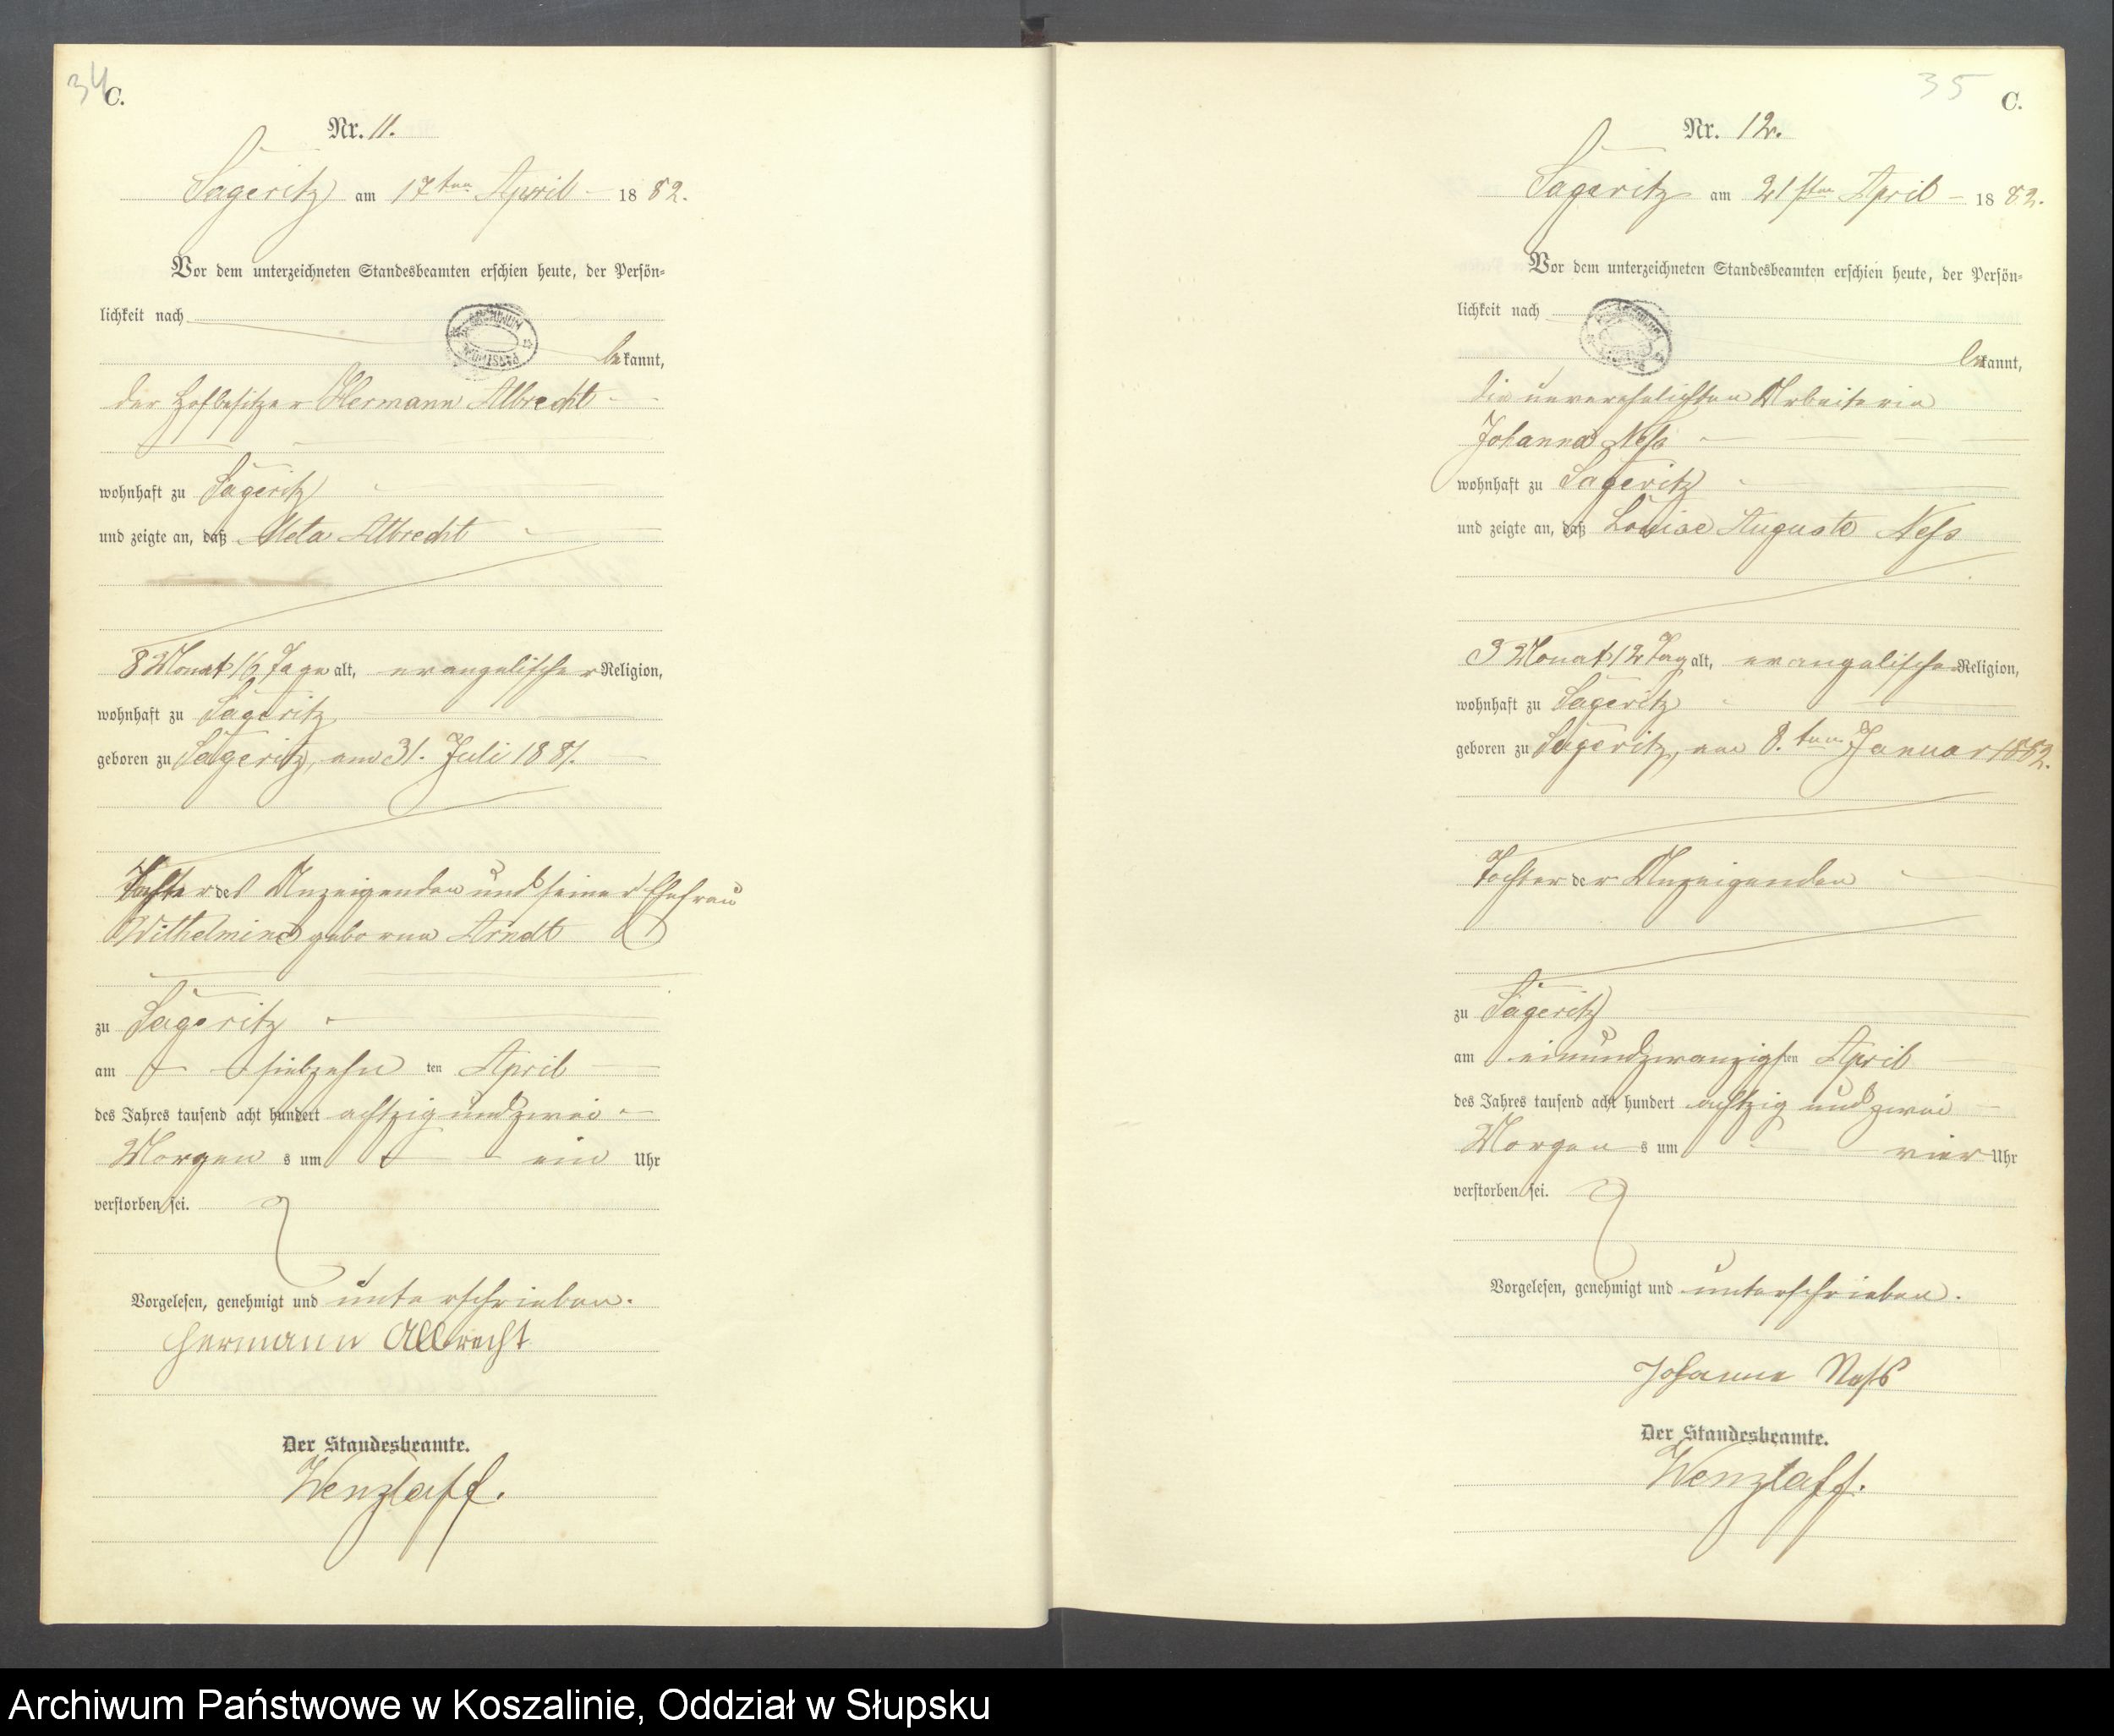 34
C.
Nr. 11.
Sageritz am 17ten April 1882.
Vor dem unterzeichneten Standesbeamten erschien heute, der Persön-
lichkeit nach
bekannt,
der Hofbesitzer Hermann Albrecht
wohnhaft zu Sageritz
und zeigte an, daß Meta Albrecht
8 Monat 16 Tage alt, evangelischer Religion,
wohnhaft zu Sageritz
geboren zu Sageritz, am 31. Juli 1881.
Tochter des Anzeigenden und seiner Ehefrau
Wilhelmine geborene Arndt
zu Sageritz
am siebzehn ten April
des Jahres tausend acht hundert achtzig und zwei
Morgen s um ein Uhr
verstorben sei.
Vorgelesen, genehmigt und unterschrieben.
Hermann Albrecht
Der Standesbeamte.
Wenzlaff.
ARCHIWUM PAŃSTWOWE
35
C.
Nr. 12.
Sageritz am 21sten April 1882.
Vor dem unterzeichneten Standesbeamten erschien heute, der Persön-
lichkeit nach
bekannt,
die unverehelichten Arbeiterin
Johanna Neß
wohnhaft zu Sageritz
und zeigte an, daß Louise Auguste Neß
3 Monat 12 Tag alt, evangelischer Religion,
wohnhaft zu Sageritz
geboren zu Sageritz, am 8.ten Januar 1882.
Tochter der Anzeigenden
zu Sageritz
am einundzwanzigsten April
des Jahres tausend acht hundert achtzig und zwei
Morgen s um vier Uhr
verstorben sei.
Vorgelesen, genehmigt und unterschrieben.
Johanne Neß
Der Standesbeamte.
Wenzlaff.
Archiwum Państwowe w Koszalinie, Oddział w Słupsku